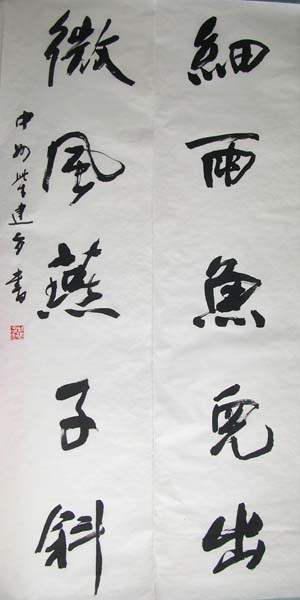 細雨魚兒出
微風燕子斜
中州柴建方書